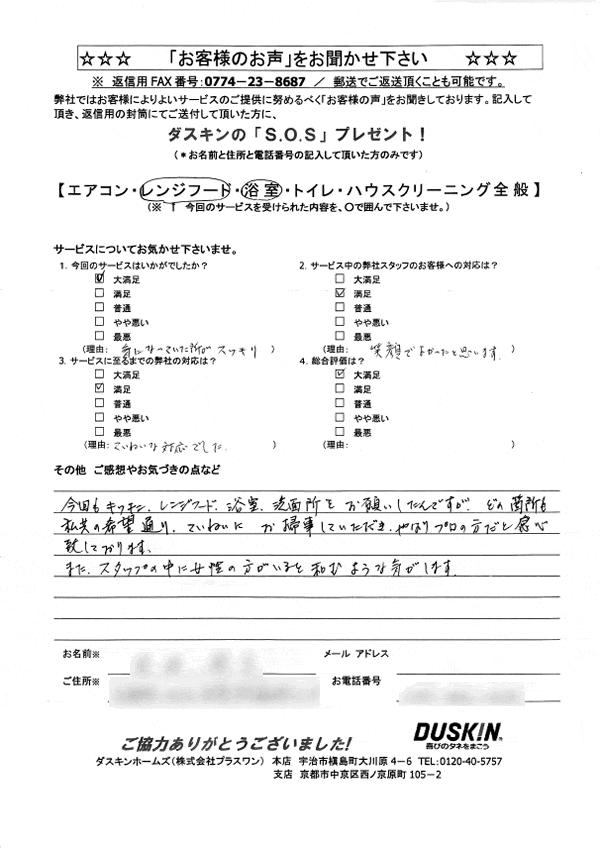 ☆☆☆ 「お客様のお声」をお聞かせ下さい ☆☆☆
※ 返信用FAX番号:0774-23-8687 / 郵送でご返送頂くことも可能です。
弊社ではお客様によりよいサービスのご提供に努めるべく「お客様の声」をお聞きしております。記入して
頂き、返信用の封筒にてご送付して頂いた方に、
ダスキンの「S.O.S」プレゼント!
(*お名前と住所と電話番号の記入して頂いた方のみです)
【エアコン・レンジフード・浴室・トイレ・ハウスクリーニング全般】
(※ ↑ 今回のサービスを受けられた内容を、○で囲んで下さいませ。)
サービスについてお気かせ下さいませ。
1. 今回のサービスはいかがでしたか?
大満足
満足
普通
やや悪い
最悪
(理由: 気になっていた所がスッキリ )
2. サービス中の弊社スタッフのお客様への対応は?
大満足
満足
普通
やや悪い
最悪
(理由: 笑顔でよかったと思います。 )
3. サービスに至るまでの弊社の対応は?
大満足
満足
普通
やや悪い
最悪
(理由: ていねいな対応でした。 )
4. 総合評価は?
大満足
満足
普通
やや悪い
最悪
(理由: )
その他 ご感想やお気づきの点など
今回もキッチン、レンジフード、浴室、洗面所をお願いしたんですが、どの箇所も
私共の希望通り、ていねいにお掃除していただき、やはりプロの方だと感心
致しております。
また、スタッフの中に女性の方がいると和むような気がします。
お名前※
メール アドレス
ご住所※
お電話番号
ご協力ありがとうございました!
DUSKIN.
喜びのタネをまこう
ダスキンホームズ(株式会社プラスワン) 本店 宇治市槇島町大川原4-6 TEL:0120-40-5757
支店 京都市中京区西ノ京原町105-2